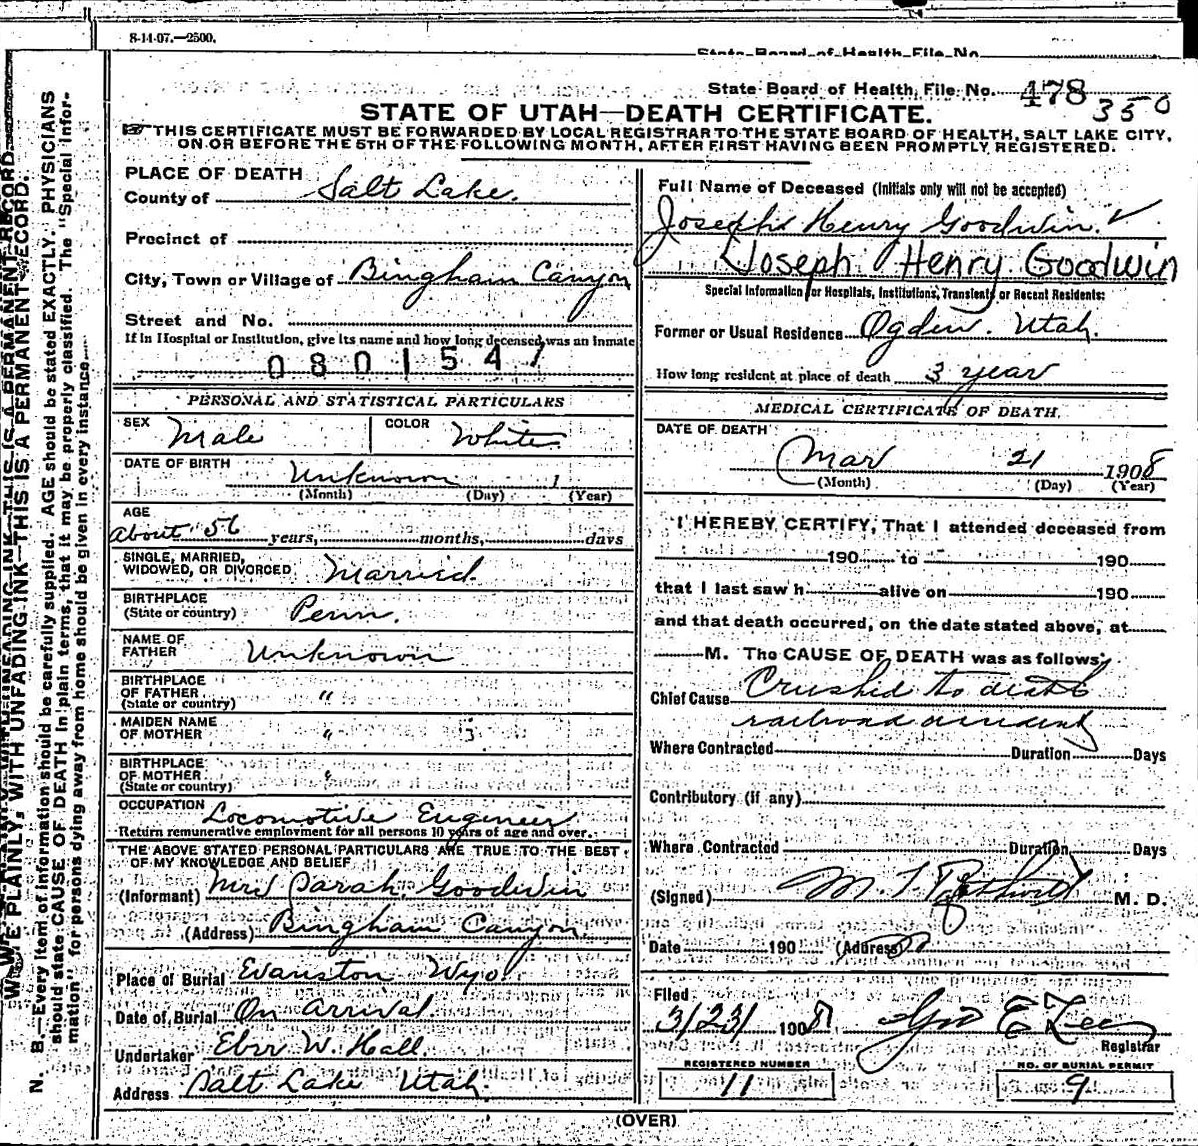 8-14-07.—2500.
State Board of Health File No.
State Board of Health, File No. 478 350
STATE OF UTAH—DEATH CERTIFICATE.
☞ THIS CERTIFICATE MUST BE FORWARDED BY LOCAL REGISTRAR TO THE STATE BOARD OF HEALTH, SALT LAKE CITY,
ON OR BEFORE THE 5TH OF THE FOLLOWING MONTH, AFTER FIRST HAVING BEEN PROMPTLY REGISTERED.
WRITE PLAINLY, WITH UNFADING INK—THIS IS A PERMANENT RECORD.
N. B.—Every item of information should be carefully supplied. AGE should be stated EXACTLY. PHYSICIANS
should state CAUSE OF DEATH in plain terms, that it may be properly classified. The "Special Infor-
mation" for persons dying away from home should be given in every instance.
PLACE OF DEATH
County of Salt Lake.
Precinct of
City, Town or Village of Bingham Canyon
Street and No.
If in Hospital or Institution, give its name and how long deceased was an inmate
0801547
PERSONAL AND STATISTICAL PARTICULARS
SEX Male COLOR White
DATE OF BIRTH Unknown 1
(Month) (Day) (Year)
AGE
About 56 years, months, days
SINGLE, MARRIED,
WIDOWED, OR DIVORCED Married.
BIRTHPLACE
(State or country) Penn.
NAME OF
FATHER Unknown
BIRTHPLACE
OF FATHER "
(State or country)
MAIDEN NAME
OF MOTHER "
BIRTHPLACE
OF MOTHER "
(State or country)
OCCUPATION Locomotive Engineer
Return remunerative employment for all persons 10 years of age and over.
THE ABOVE STATED PERSONAL PARTICULARS ARE TRUE TO THE BEST
OF MY KNOWLEDGE AND BELIEF
(Informant) Mrs Sarah Goodwin
(Address) Bingham Canyon
Place of Burial Evanston Wyo
Date of Burial On arrival
Undertaker Eber W. Hall.
Address Salt Lake Utah.
Full Name of Deceased (Initials only will not be accepted)
Joseph Henry Goodwin. ✓
Joseph Henry Goodwin
Special Information for Hospitals, Institutions, Transients or Recent Residents:
Former or Usual Residence Ogden. Utah.
How long resident at place of death 3 year
MEDICAL CERTIFICATE OF DEATH.
DATE OF DEATH
Mar 21 1908
(Month) (Day) (Year)
I HEREBY CERTIFY, That I attended deceased from
190 to 190
that I last saw h alive on 190
and that death occurred, on the date stated above, at
M. The CAUSE OF DEATH was as follows:
Chief Cause Crushed to death
railroad accident
Where Contracted Duration Days
Contributory (if any)
Where Contracted Duration Days
(Signed) M. D.
Date 190 (Address)
Filed
3/23/ 1908 Geo E Lee
Registrar
REGISTERED NUMBER
11
NO. OF BURIAL PERMIT
9
(OVER)